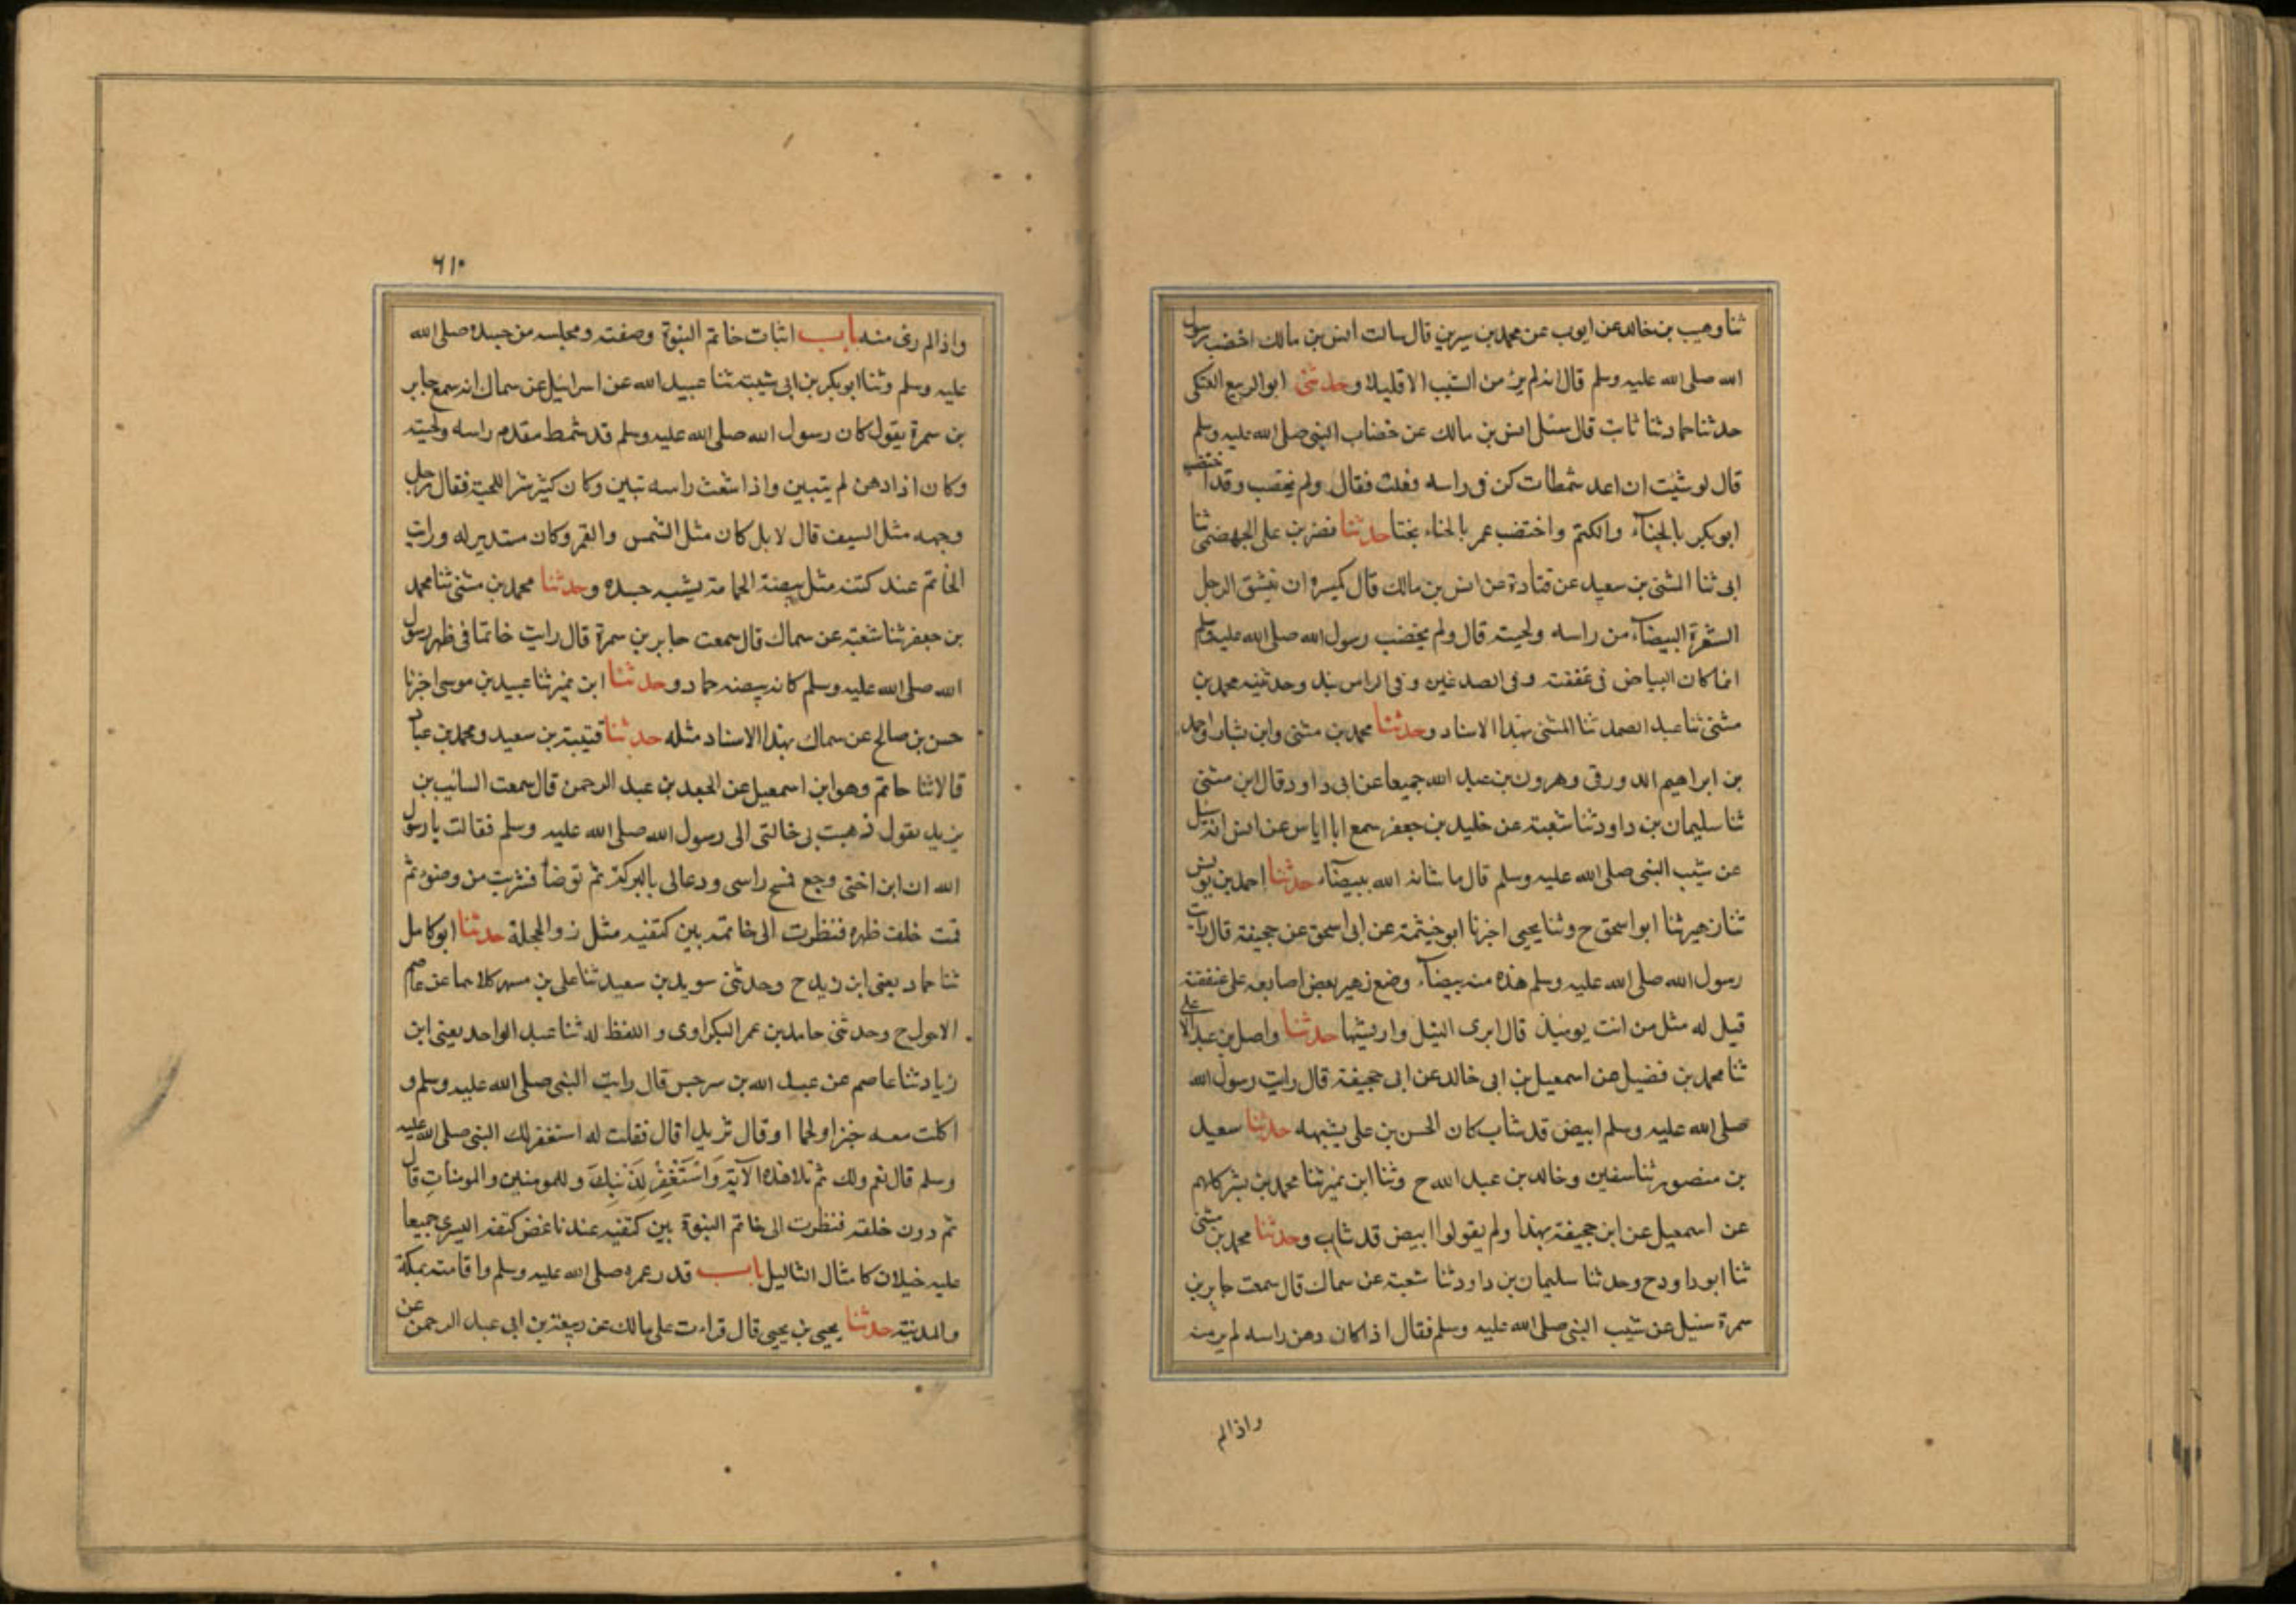 ثنا وهيب بن خالد عن ايوب عن محمد بن سيرين قال سالت انس بن مالك اخضب رسول
الله صلى الله عليه وسلم قال انه لم ير من الشيب الا قليلا وحدثنى ابو الربيع العتكى
حدثنا حماد ثنا ثابت قال سئل انس بن مالك عن خضاب النبى صلى الله عليه وسلم
قال لو شئت ان اعد شمطات كن فى راسه فعلت فقال ولم يختضب وقد اختضب
ابو بكر بالحناء والكتم واختضب عمر بالحناء بحتا حدثنا نصر بن على الجهضمى ثنا
ابى ثنا المثنى بن سعيد عن قتادة عن انس بن مالك قال يكره ان ينتق الرجل
الشعرة البيضاء من راسه ولحيته قال ولم يخضب رسول الله صلى الله عليه وسلم
انما كان البياض فى عنفقته وفى الصدغين وفى الراس نبذ وحدثنيه محمد بن
مثنى ثنا عبد الصمد ثنا المثنى بهذا الاسناد وحدثنا محمد بن مثنى وابن بشار واحمد
بن ابراهيم الدورقى وهرون بن عبد الله جميعا عن ابى داود قال ابن مثنى
ثنا سليمان بن داود ثنا شعبة عن خليد بن جعفر سمع ابا اياس عن انس انه سئل
عن شيب النبى صلى الله عليه وسلم قال ما شانه الله ببيضاء حدثنا احمد بن يونس
ثنا زهير ثنا ابو اسحق ح وثنا يحيى اخبرنا ابو خيثمة عن ابى اسحق عن جحيفة قال رايت
رسول الله صلى الله عليه وسلم هذه منه بيضاء وضع زهير بعض اصابعه على عنفقته
قيل له مثل من انت يومئذ قال ابرى النبل واريشها حدثنا واصل بن عبد الاعلى
ثنا محمد بن فضيل عن اسمعيل بن ابى خالد عن ابى جحيفة قال رايت رسول الله
صلى الله عليه وسلم ابيض قد شاب كان الحسن بن على يشبهه حدثنا سعيد
بن منصور ثنا سفين وخالد بن عبد الله ح وثنا ابن نمير ثنا محمد بن بشر كلهم
عن اسمعيل عن ابن جحيفة بهذا ولم يقولوا ابيض قد شاب وحدثنا محمد بن مثنى
ثنا ابو داود ح وحدثنا سليمان بن داود ثنا شعبة عن سماك قال سمعت جابر بن
سمرة سئل عن شيب النبى صلى الله عليه وسلم فقال اذا كان دهن راسه لم ير منه
واذا لم
٦١٠
واذا لم رئى منه باب اثبات خاتم النبوة وصفته ومحله من جسده صلى الله
عليه وسلم وثنا ابو بكر بن ابى شيبة ثنا عبيد الله عن اسرائيل عن سماك انه سمع جابر
بن سمرة يقول كان رسول الله صلى الله عليه وسلم قد شمط مقدم راسه ولحيته
وكان اذا ادهن لم يتبين واذا شعث راسه تبين وكان كثير شعر اللحية فقال رجل
وجهه مثل السيف قال لا بل كان مثل الشمس والقمر وكان مستديرله ورايت
الخاتم عند كتفه مثل بيضة الحمامة يشبه جسده وحدثنا محمد بن مثنى ثنا محمد
بن جعفر ثنا شعبة عن سماك قال سمعت جابر بن سمرة قال رايت خاتما فى ظهر رسول
الله صلى الله عليه وسلم كانه بيضه حمار وحدثنا ابن نمير ثنا عبيد بن موسى اخبرنا
حسن بن صالح عن سماك بهذا الاسناد مثله حدثنا قتيبة بن سعيد ومحمد بن عباد
قالا ثنا حاتم وهو ابن اسمعيل عن الجعد بن عبد الرحمن قال سمعت السائب بن
يزيد يقول ذهبت بى خالتى الى رسول الله صلى الله عليه وسلم فقالت يا رسول
الله ان ابن اختى وجع فمسح راسى ودعا لى بالبركة ثم توضا فشربت من وضوءه ثم
قمت خلف ظهره فنظرت الى خاتمه بين كتفيه مثل زر الحجلة حدثنا ابو كامل
ثنا حماد يعنى ابن زيد ح وحدثنى سويد بن سعيد ثنا على بن مسهر كلاهما عن عاصم
الاحول ح وحدثنى حامد بن عمر البكراوى واللفظ له ثنا عبد الواحد يعنى ابن
زياد ثنا عاصم عن عبد الله بن سرجس قال رايت النبى صلى الله عليه وسلم و
اكلت معه خبزا ولحما او قال ثريدا قال فقلت له استغفر لك النبى صلى الله عليه
وسلم قال نعم ولك ثم تلا هذه الآية وَاسْتَغْفِرْ لِذَنْبِكَ وللمومنين والمومناتِ قال
ثم درت خلفه فنظرت الى خاتم النبوة بين كتفيه عند ناغض كتفه اليسرى جميعا
عليه خيلان كامثال الثاليل باب قدر عمره صلى الله عليه وسلم واقامته بمكة
والمدينة حدثنا يحيى بن يحيى قال قراءت على مالك عن ربيعة بن ابى عبد الرحمن عن